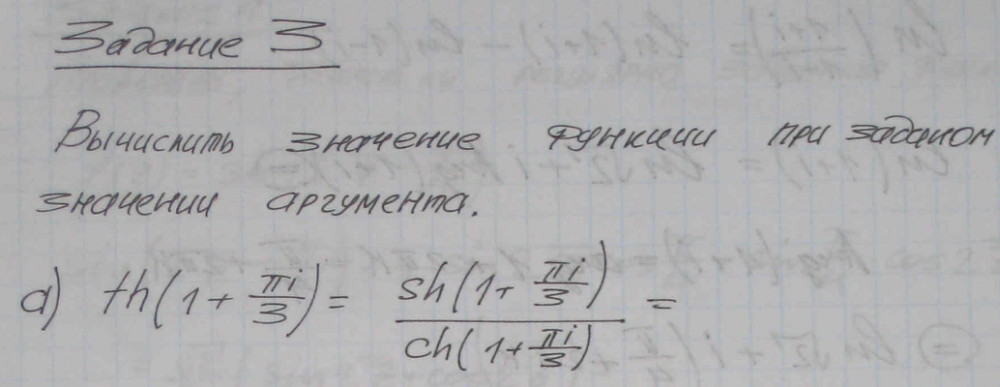 Задание 3
Вычислить значение функции при заданом
значении аргумента.
a) th(1 + πi/3) = sh(1 + πi/3) / ch(1 + πi/3) =